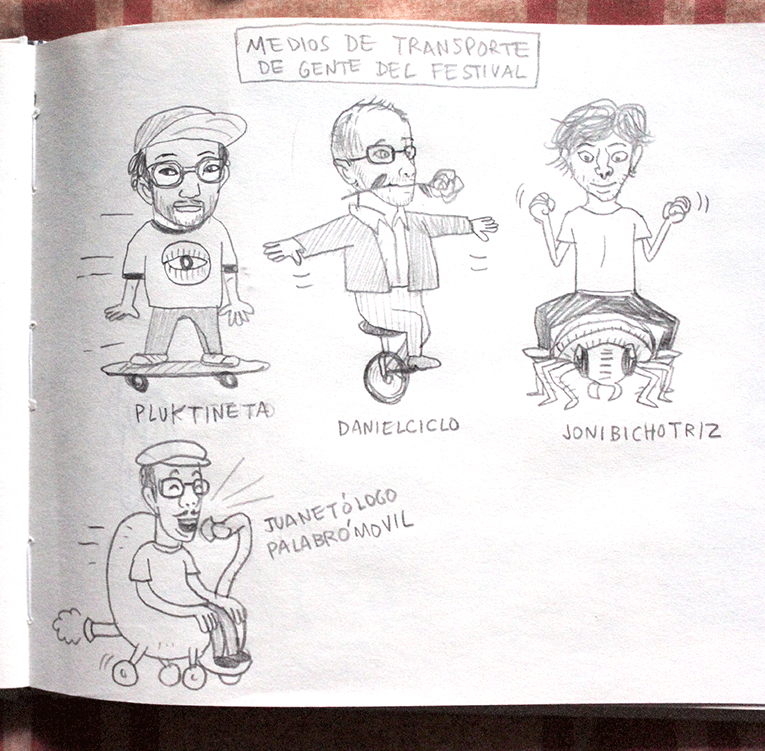 MEDIOS DE TRANSPORTE
DE GENTE DEL FESTIVAL
PLUKTINETA
DANIELCICLO
JONIBICHOTRIZ
JUANETÓLOGO
PALABRÓMOVIL